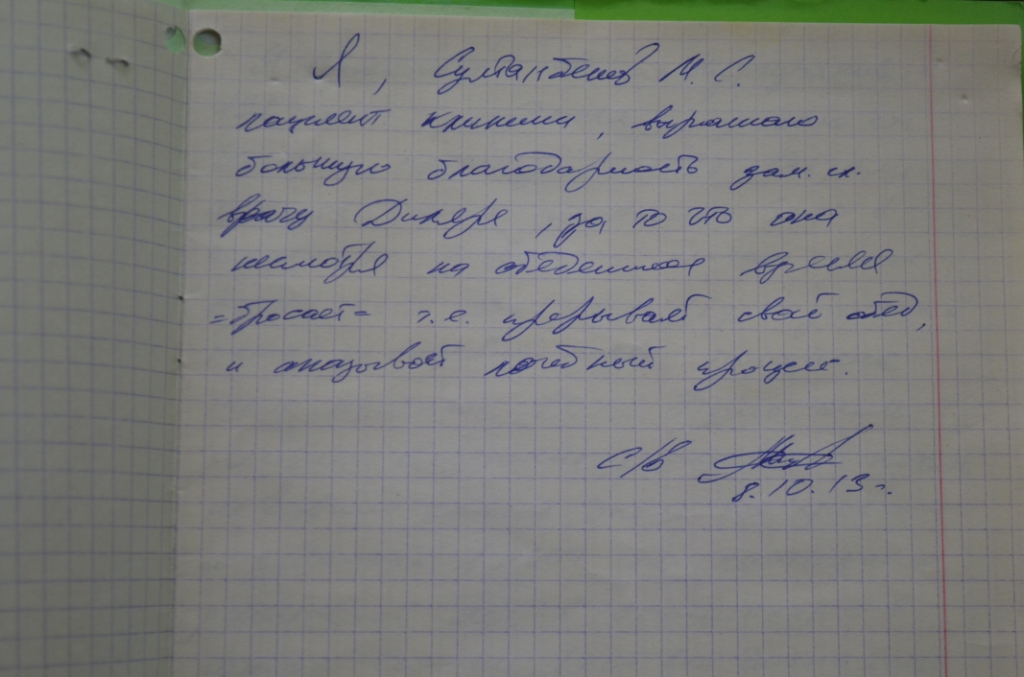 Я, Султанбеков М. С.
пациент клиники, выражаю
большую благодарность зам. гл.
врачу Диляре, за то что она
несмотря на обеденное время
=бросает= т.е. прерывает свой обед,
и оказывает лечебный процесс.
С/в
8.10.13 г.